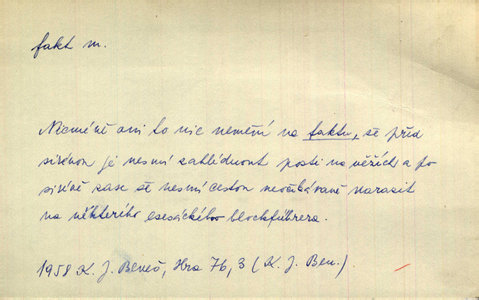 fakt m.
Nicméně ani to nic nemění na faktu, že před
sirénou je nesmí zahlédnout posti na věžích a po
siréně zase že nesmí cestou neočekávaně narazit
na některého esesáckého blockführera.
1958 K. J. Beneš, Hra 76, 3 (K. J. Ben.)